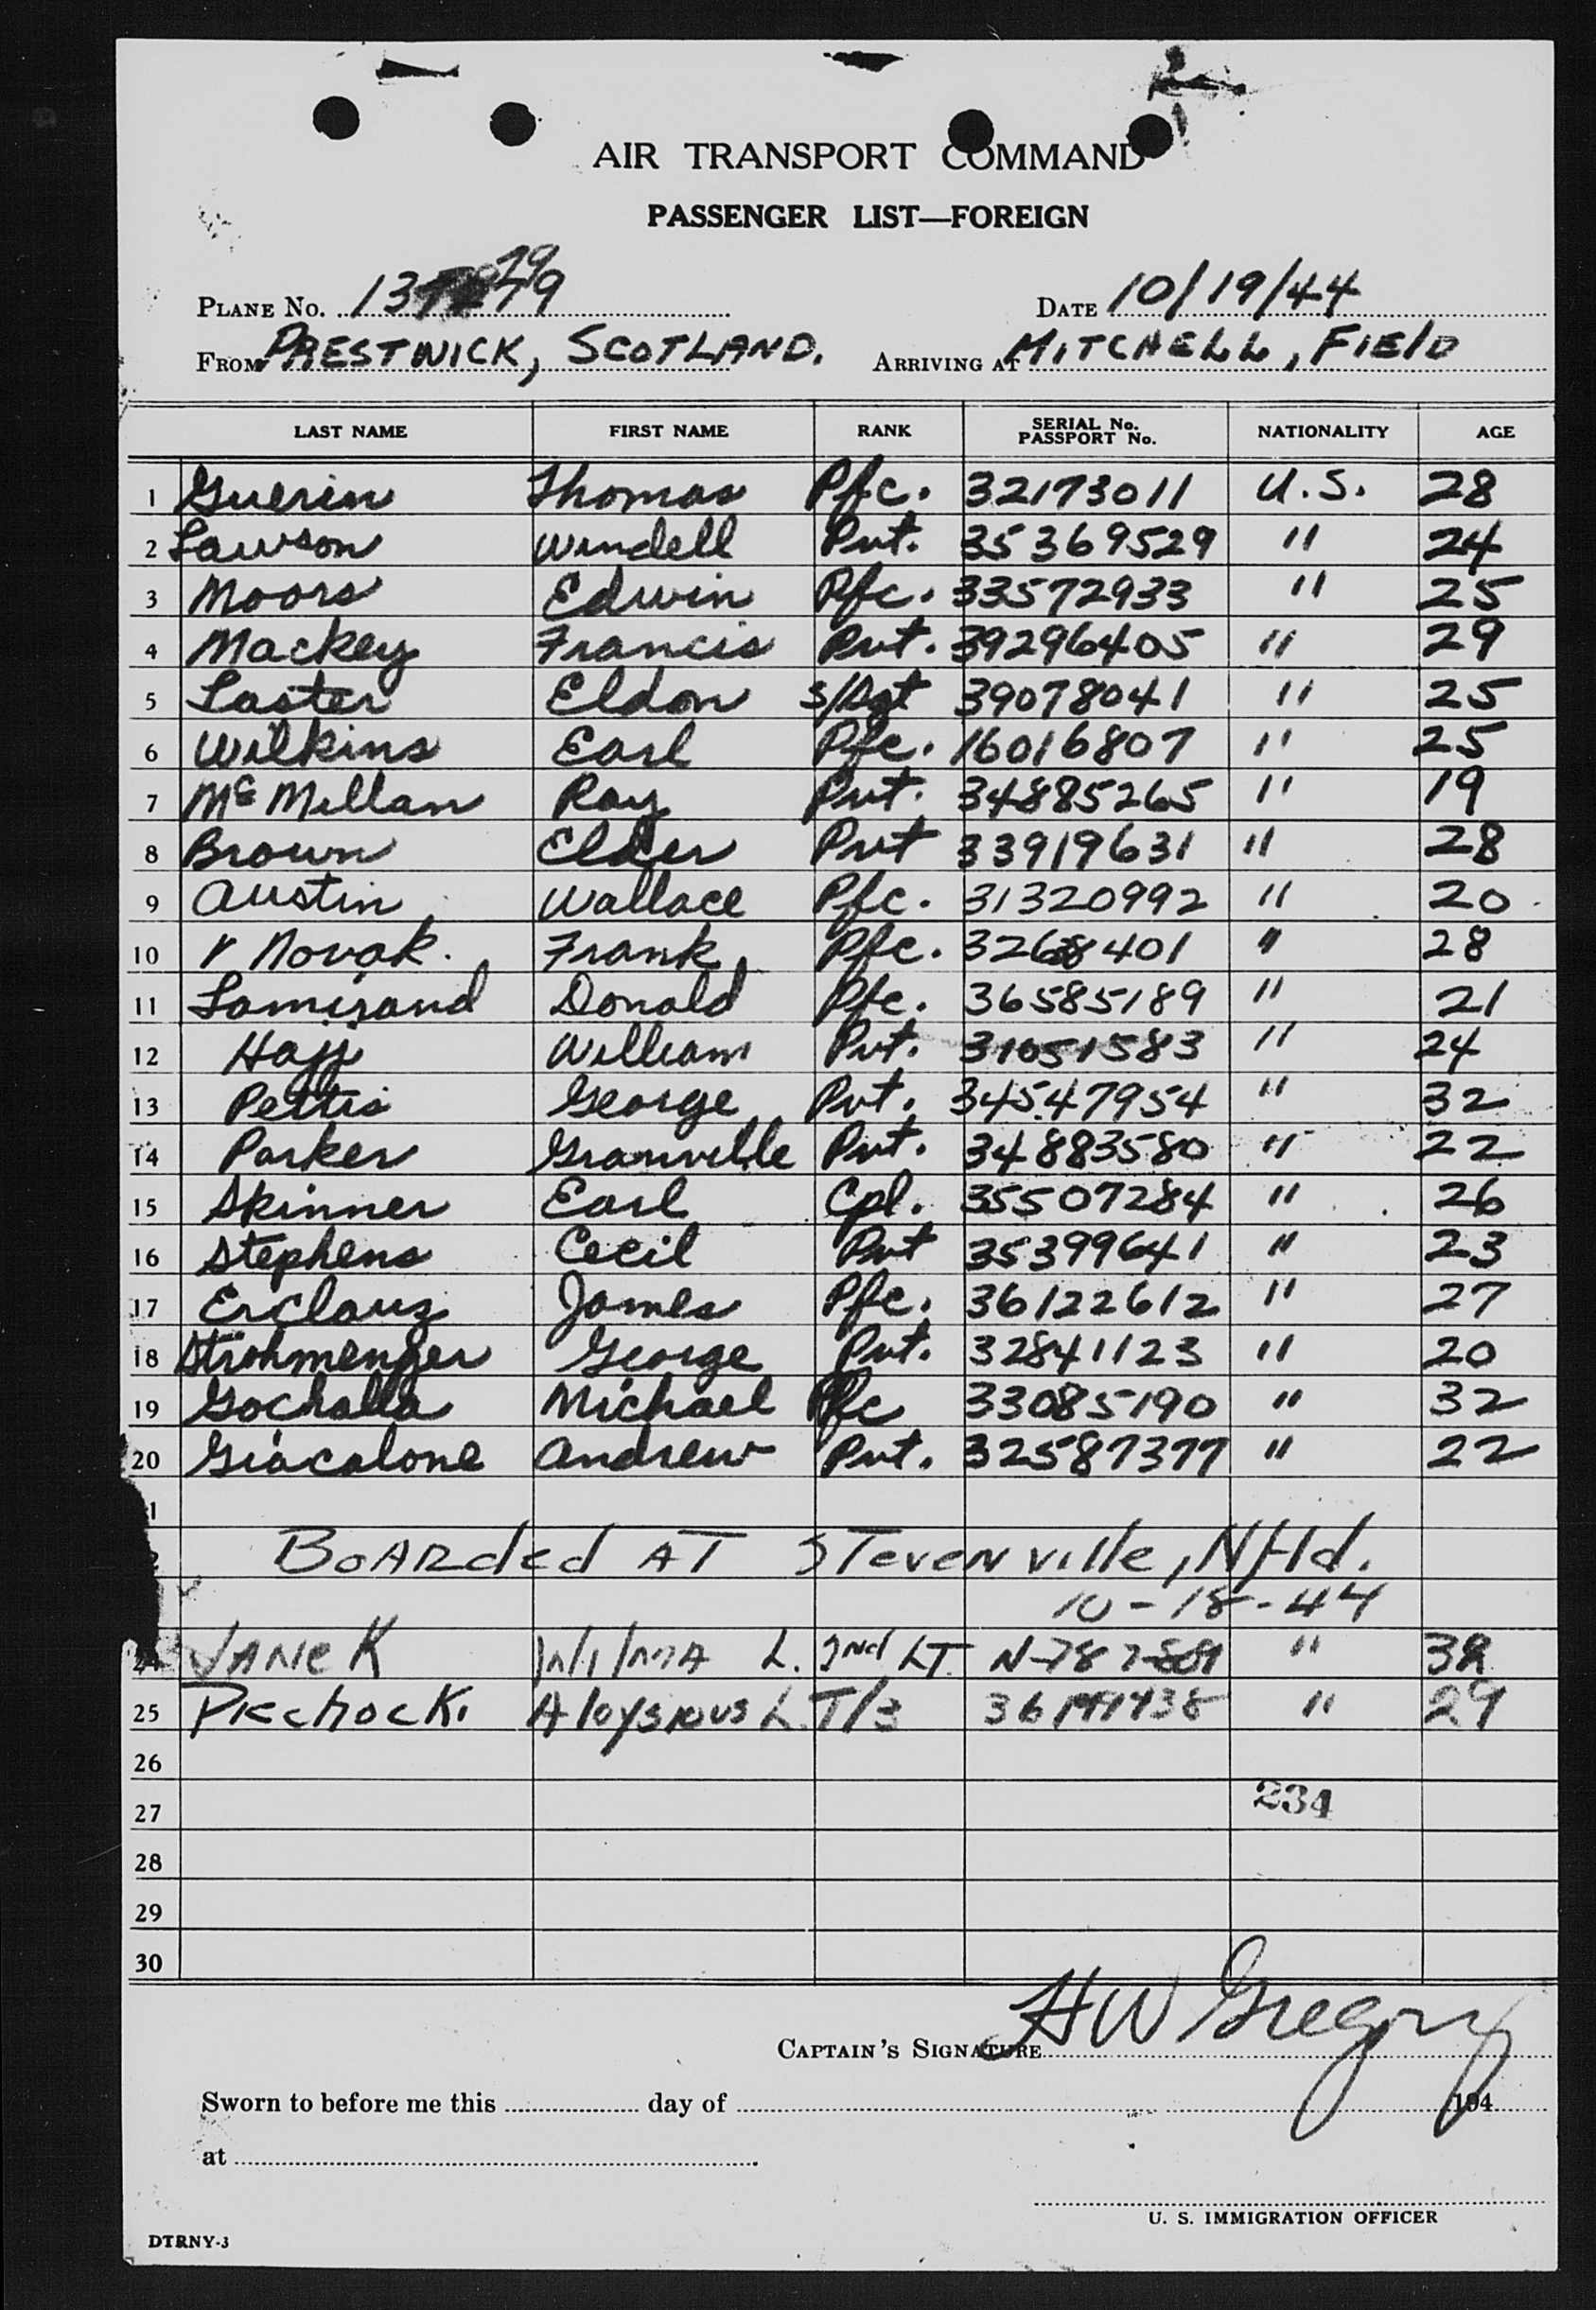 AIR TRANSPORT COMMAND
PASSENGER LIST—FOREIGN
PLANE No. DATE 10/19/44
FROM PRESTWICK, SCOTLAND. ARRIVING AT MITCHELL, FIELD
LAST NAME FIRST NAME RANK SERIAL No. PASSPORT No. NATIONALITY AGE
1 Guerin Thomas Pfc. 32173011 U.S. 28
2 Lawson Windell Pvt. 35369529 " 24
3 Moors Edwin Pfc. 33572933 " 25
4 Mackey Francis Pvt. 39296405 " 29
5 Laster Eldon S/Sgt 39078041 " 25
6 Wilkins Earl Pfc. 16016807 " 25
7 McMillan Ray Pvt. 34885265 " 19
8 Brown Elder Pvt 33919631 " 28
9 Austin Wallace Pfc. 31320992 " 20
10 Novak. Frank Pfc. " 28
11 Lamirand Donald Pfc. 36585189 " 21
12 William Pvt. 31051583 " 24
13 Pettis George Pvt. 34547954 " 32
14 Parker Granville Pvt. 34883580 " 22
15 Skinner Earl Cpl. 35507284 " 26
16 Stephens Cecil Pvt 35399641 " 23
17 James Pfc. 36122612 " 27
18 Strohmenger George Pvt. 32841123 " 20
19 Gochalla Michael Pfc 33085190 " 32
20 Giacalone Andrew Pvt. 32587377 " 22
BOARded AT STevenville, Nfld.
10-18-44
VANeK WilmA L. 2nd LT. " 
25 PiechockI Aloysious L. T/3 " 29
26
27 234
28
29
30
CAPTAIN'S SIGNATURE HW Gregory
Sworn to before me this day of 194
at
U. S. IMMIGRATION OFFICER
DTRNY-3